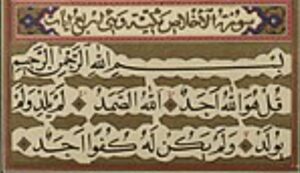 سورة الاخلاص مكية وهي اربع ايات
بسم الله الرحمن الرحيم
قُلْ هُوَ اللَّهُ اَحَدٌ ۞ اَللَّهُ الصَّمَدُ ۞ لَمْ يَلِدْ وَلَمْ
يُولَدْ ۞ وَلَمْ يَكُنْ لَهُ كُفُوًا اَحَدٌ ۞